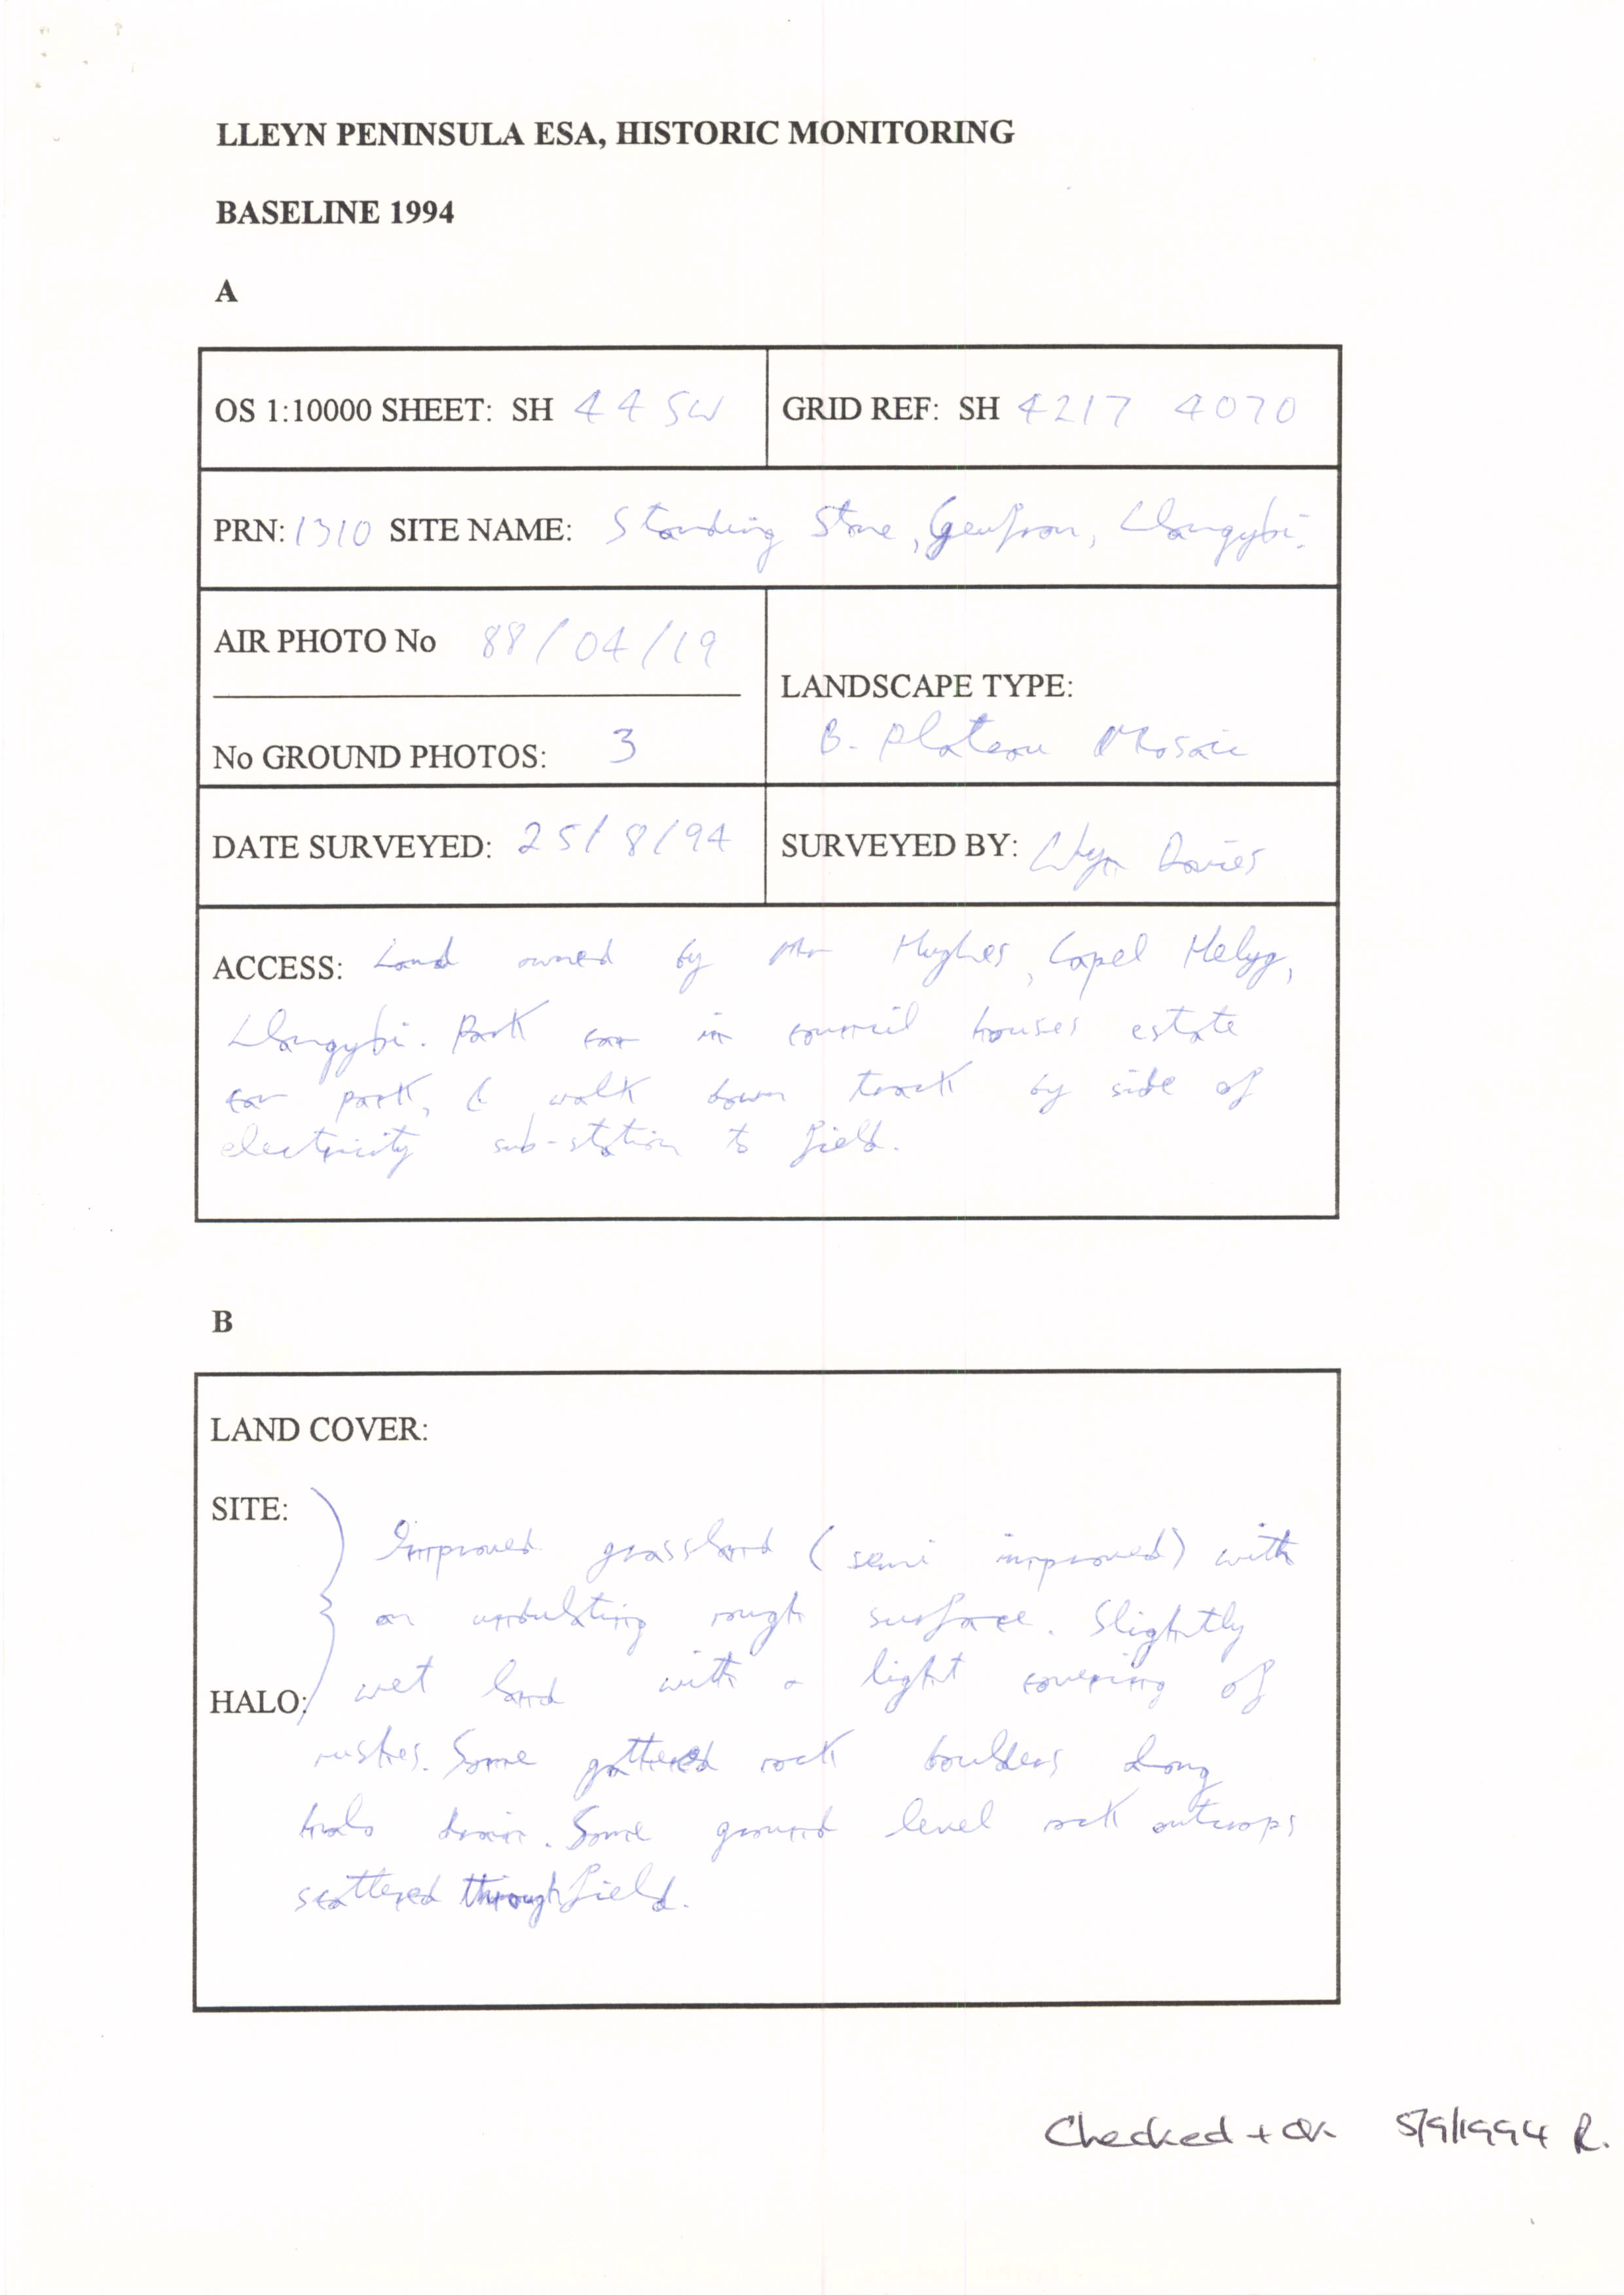 LLEYN PENINSULA ESA, HISTORIC MONITORING
BASELINE 1994
A
OS 1:10000 SHEET: SH 44 SW
GRID REF: SH 4217 4070
PRN: 1310 SITE NAME: Standing Stone, Genfron, Llangybi.
AIR PHOTO No 88/04/19
No GROUND PHOTOS: 3
LANDSCAPE TYPE:
B. Plateau Mosaic
DATE SURVEYED: 25/8/94
SURVEYED BY: Davies
ACCESS: Land owned by Mr Hughes, Capel Helyg,
Llangybi. Park car in council houses estate
car park, & walk down track by side of
electricity sub-station to field.
B
LAND COVER:
SITE:
Improved grassland (semi improved) with
an undulating rough surface. Slightly
HALO: wet land with a light covering of
rushes. Some gathered rock boulders along
halo drain. Some ground level rock outcrops
scattered through field.
Checked + OK 5/9/1994 R.